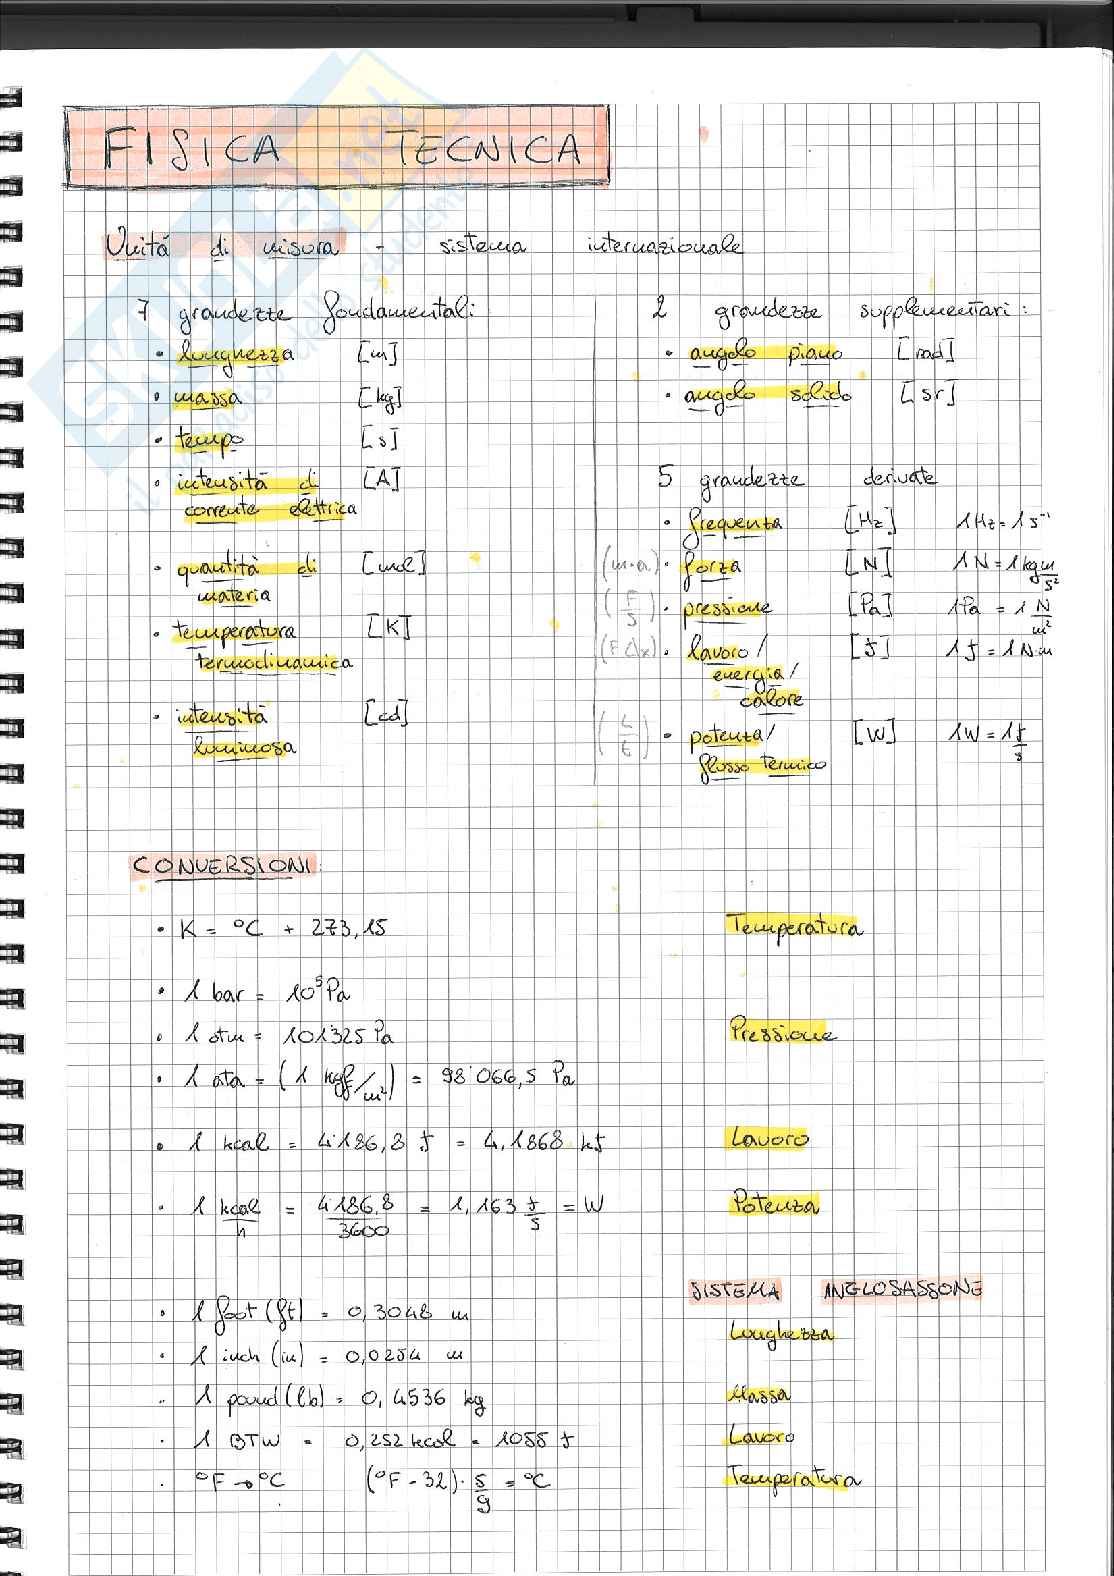 FISICA TECNICA
Unità di misura - sistema internazionale
7 grandezze fondamentali:
• lunghezza [m]
• massa [kg]
• tempo [s]
• intensità di [A]
corrente elettrica
• quantità di [mol]
materia
• temperatura [K]
termodinamica
• intensità [cd]
luminosa
2 grandezze supplementari:
• angolo piano [rad]
• angolo solido [sr]
5 grandezze derivate
• frequenza [Hz] 1 Hz = 1 s⁻¹
(m·a) • forza [N] 1 N = 1 kg m/s²
(F/S) • pressione [Pa] 1 Pa = 1 N/m²
(F Δx) • lavoro/ [J] 1 J = 1 N·m
energia/
calore
(L/t) • potenza/ [W] 1 W = 1 J/s
flusso termico
CONVERSIONI:
• K = °C + 273,15 Temperatura
• 1 bar = 10⁵ Pa
• 1 atm = 101'325 Pa Pressione
• 1 ata = (1 kgf/m²) = 98'066,5 Pa
• 1 kcal = 4'186,8 J = 4,1868 kJ Lavoro
• 1 kcal/h = 4'186,8/3600 = 1,163 J/s = W Potenza
SISTEMA ANGLOSASSONE
• 1 foot (ft) = 0,3048 m
Lunghezza
• 1 inch (in) = 0,0254 m
• 1 pound (lb) = 0,4536 kg Massa
• 1 BTW = 0,252 kcal = 1055 J Lavoro
• °F → °C (°F - 32) · 5/9 = °C Temperatura